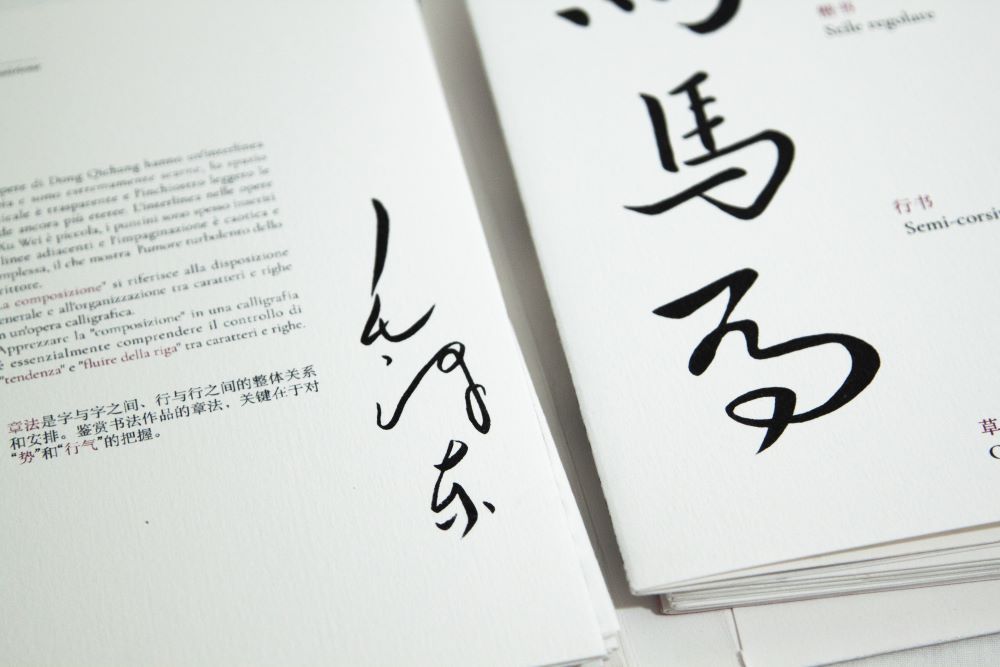 pere di Dong Qichang hanno un'interlinea
ra e sono estremamente scarne, lo spazio
icale è trasparente e l'inchiostro leggero le
de ancora più eteree. L'interlinea nelle opere
Xu Wei è piccola, i puntini sono spesso inseriti
linee adiacenti e l'impaginazione è caotica e
mplessa, il che mostra l'umore turbolento dello
rittore.
La composizione" si riferisce alla disposizione
enerale e all'organizzazione tra caratteri e righe
n un'opera calligrafica.
Apprezzare la "composizione" in una calligrafia
è essenzialmente comprendere il controllo di
"tendenza" e "fluire della riga" tra caratteri e righe.
章法是字与字之间、行与行之间的整体关系
和安排。鉴赏书法作品的章法，关键在于对
“势”和“行气”的把握。
毛泽东
楷书
Stile regolare
馬
行书
Semi-corsi
马
草
C